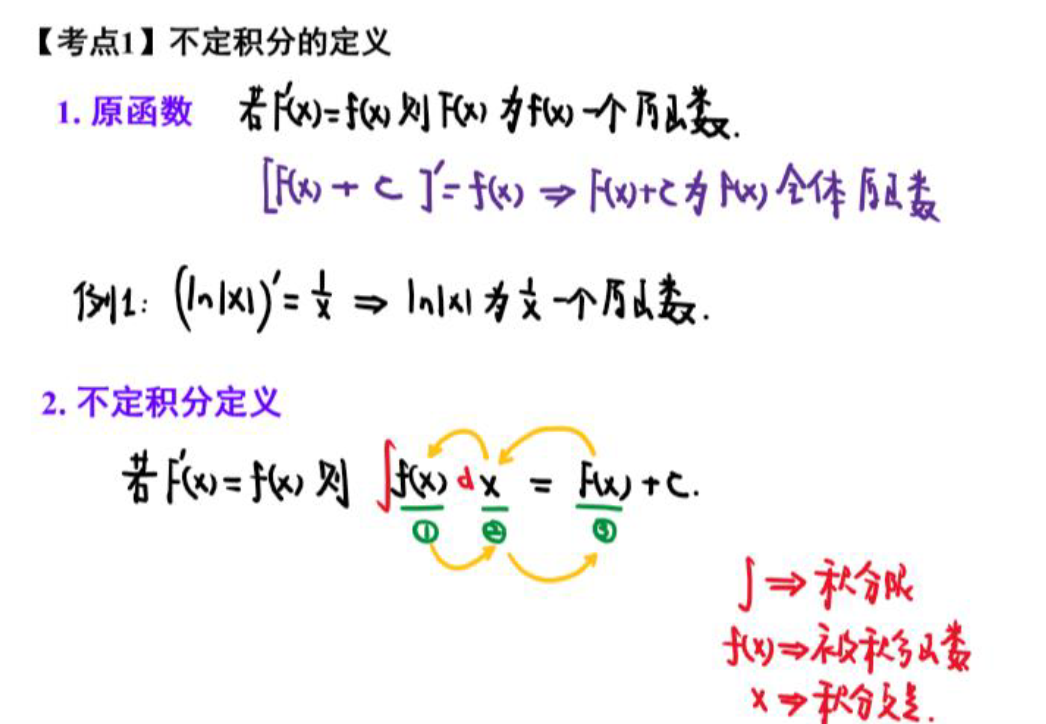 【考点1】不定积分的定义
1. 原函数 若F'(x)=f(x)则F(x)为f(x)一个原函数.
[F(x)+C]'=f(x)⇒F(x)+C为f(x)全体原函数
例1: (ln|x|)'=1/x ⇒ ln|x|为1/x一个原函数.
2. 不定积分定义
若F'(x)=f(x)则 ∫f(x)dx = F(x)+C.
① ② ③
∫⇒积分限
f(x)⇒被积函数
x⇒积分变量.